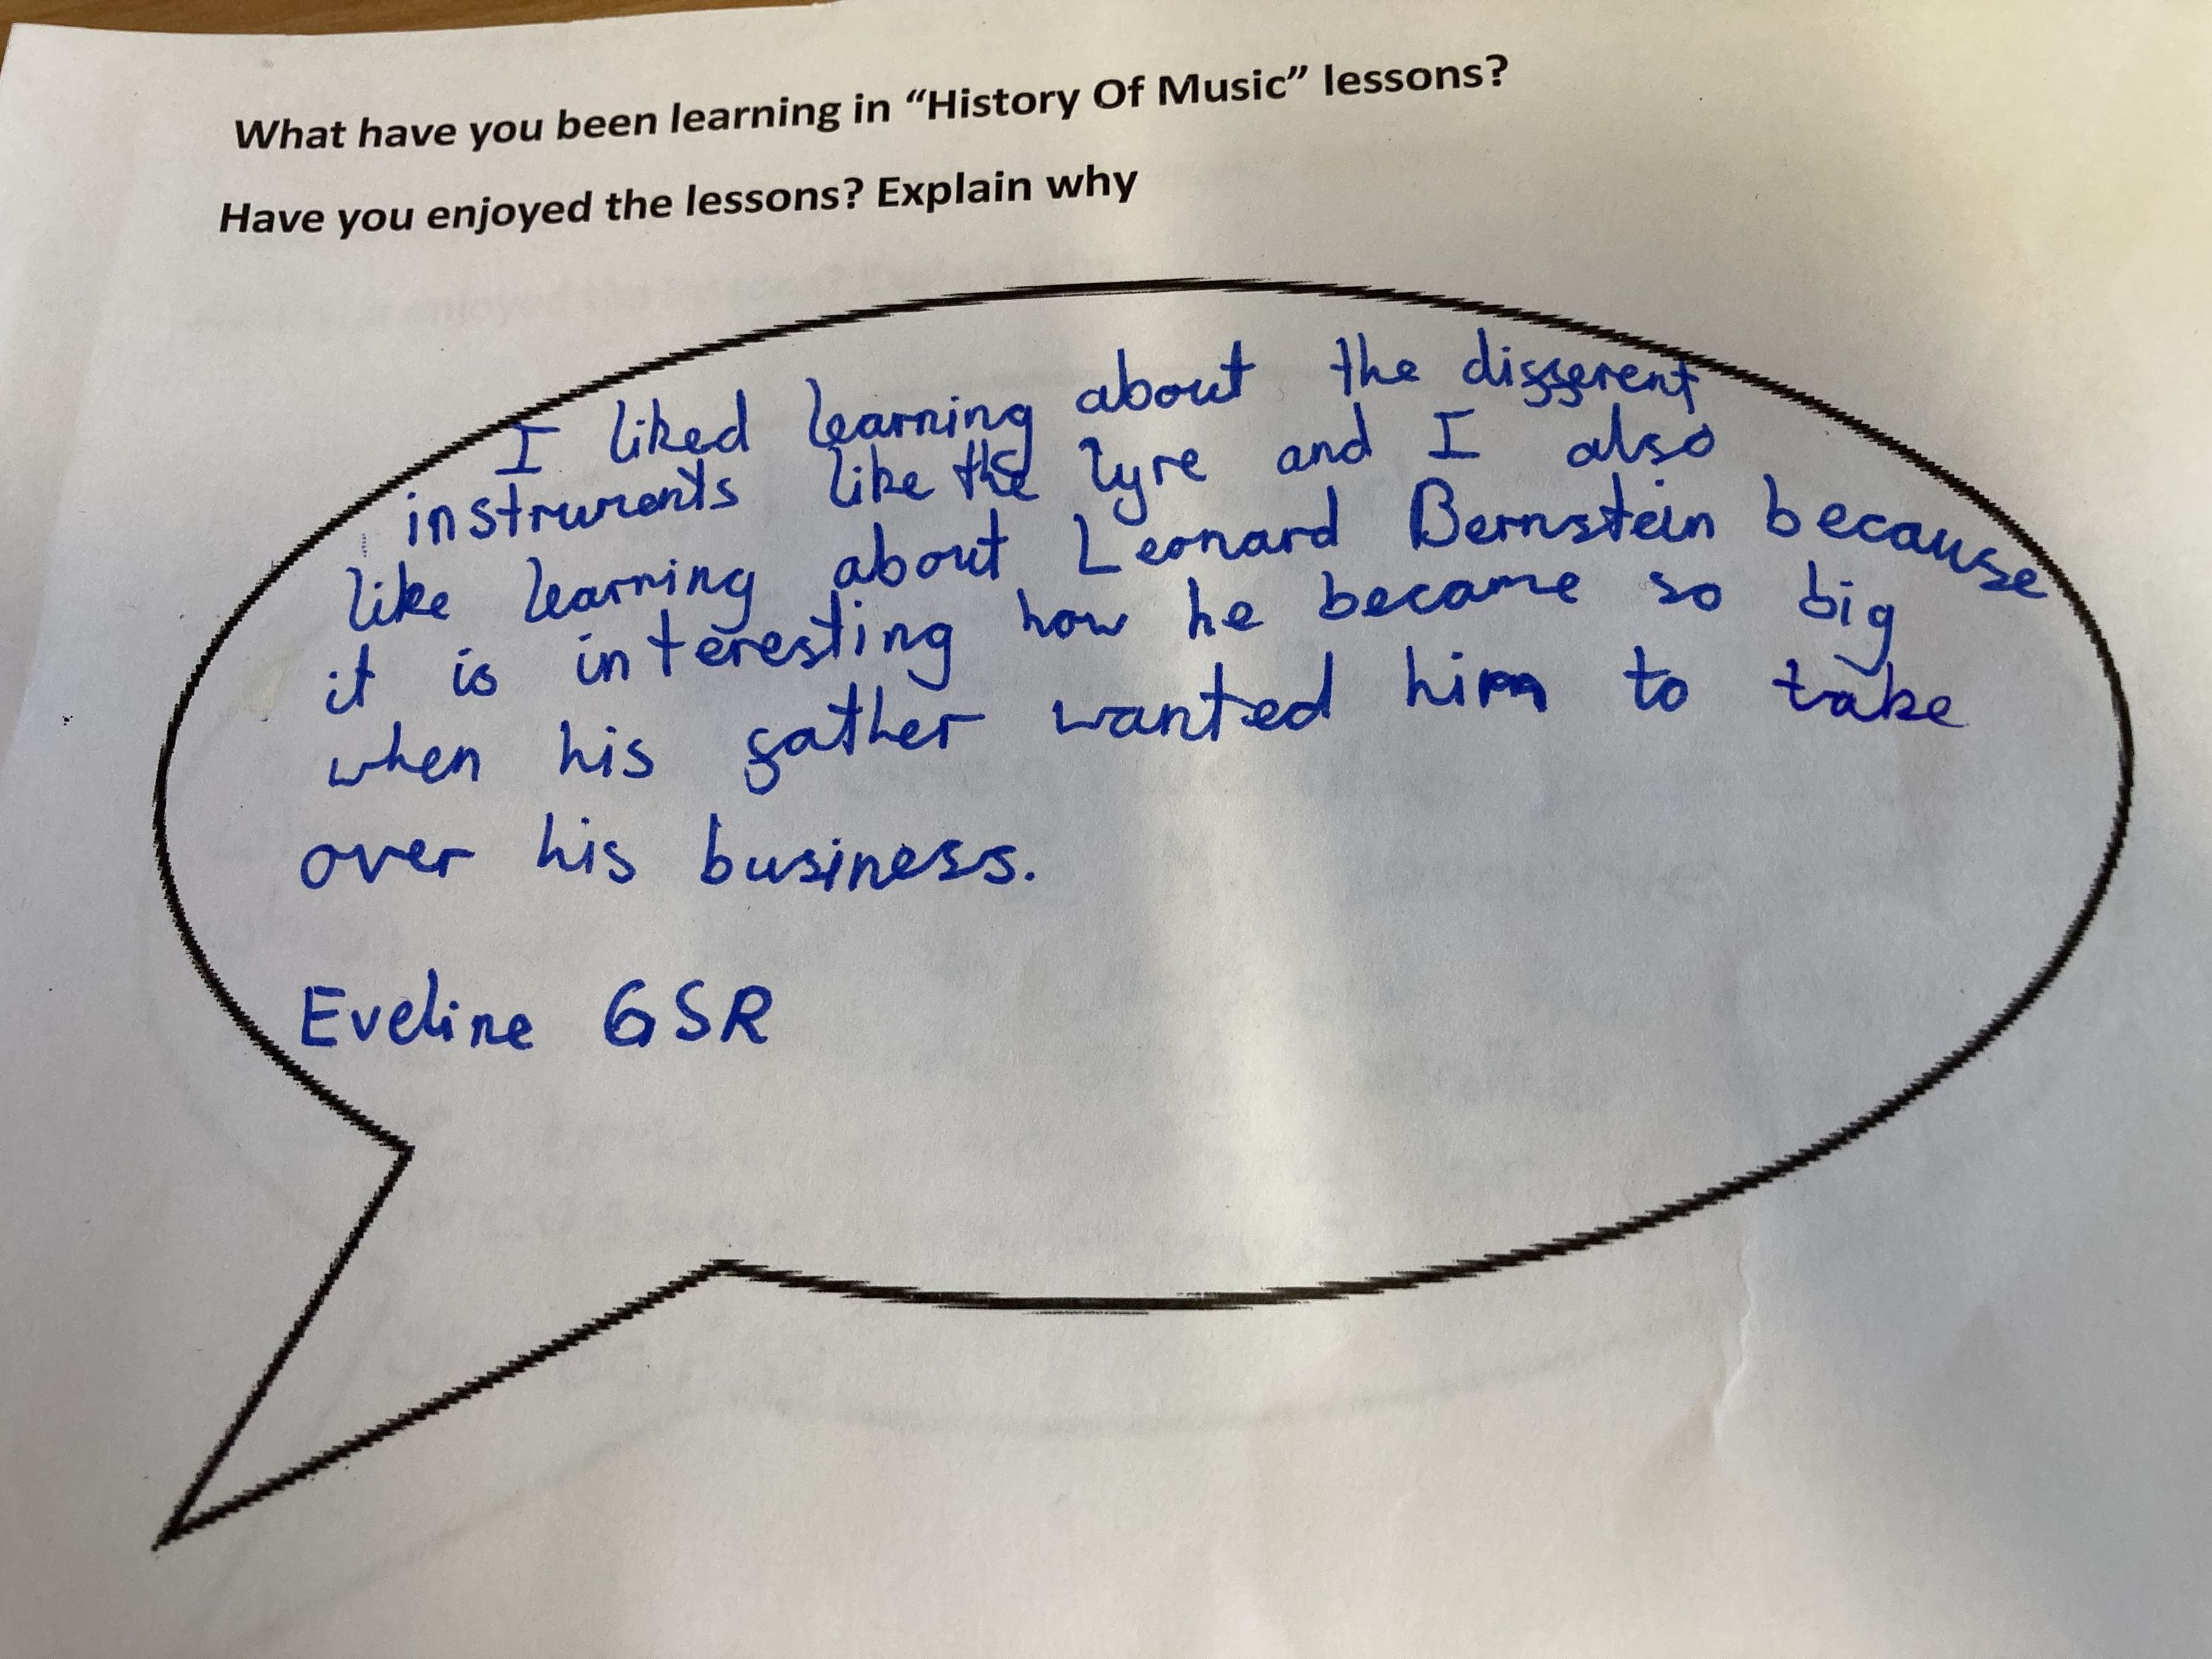 What have you been learning in “History Of Music” lessons?
Have you enjoyed the lessons? Explain why
I liked learning about the different
instruments like the lyre and I also
like learning about Leonard Bernstein because
it is interesting how he became so big
when his father wanted him to take
over his business.
Eveline 6SR